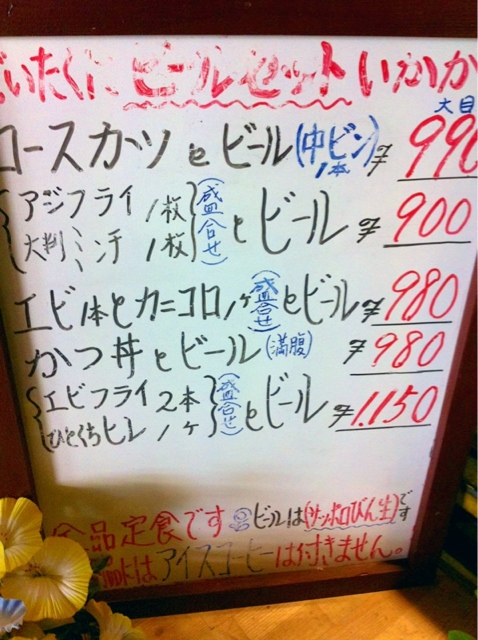 いたくに ビールセットいかが
大目
ロースカツとビール(中ビン1本)〒990
アジフライ1枚 大判ミンチ1枚(盛合せ)とビール〒900
エビ1本とカニコロ1ヶ(盛合せ)とビール〒980
かつ丼とビール(満腹)〒980
エビフライ2本 ひとくちヒレ1ヶ(盛合せ)とビール〒1.150
全品定食です ビールは(サッポロびん生)です
はアイスコーヒーは付きません。